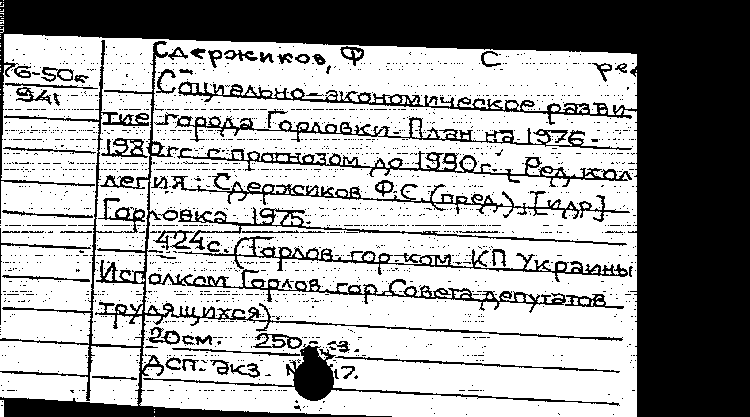 Сдержиков, Ф С ре
76-50к
941
Социально-экономическое разви
тие города Горловки. План на 1976-
1980гг с прогнозом до 1990г. [Ред. кол
легия: Сдержиков Ф.С. (пред.), [идр]
Горловка, 1975.
424с. (Горлов. гор. ком. КП Украины
Исполком Горлов. гор. Совета депутатов
трудящихся).
20см. 250 экз.
Дсп. Экз. 17.